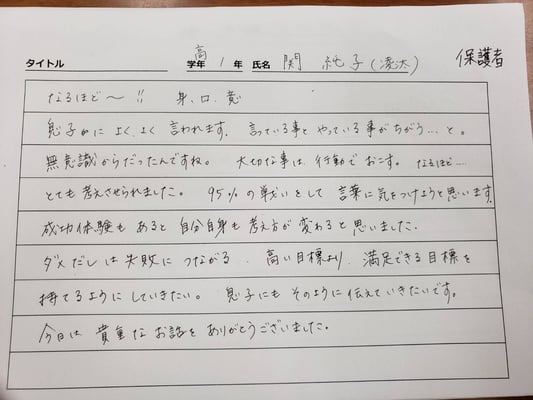 高 保護者
タイトル 学年 1年 氏名 関 純子(凌汰)
なるほど〜!! 身、口、意
息子がによく、よく 言われます。言っている事とやっている事がちがう…と。
無意識からだったんですね。 大切な事は、行動でおこす。 なるほど…
とても考えさせられました。 95%の戦いをして 言葉に気をつけようと思います。
成功体験もあると 自分自身も考え方が変わると思いました。
ダメだしは失敗につながる、 高い目標より、満足できる目標を
持てるようにしていきたい。 息子にもそのように伝えていきたいです。
今日は 貴重なお話をありがとうございました。